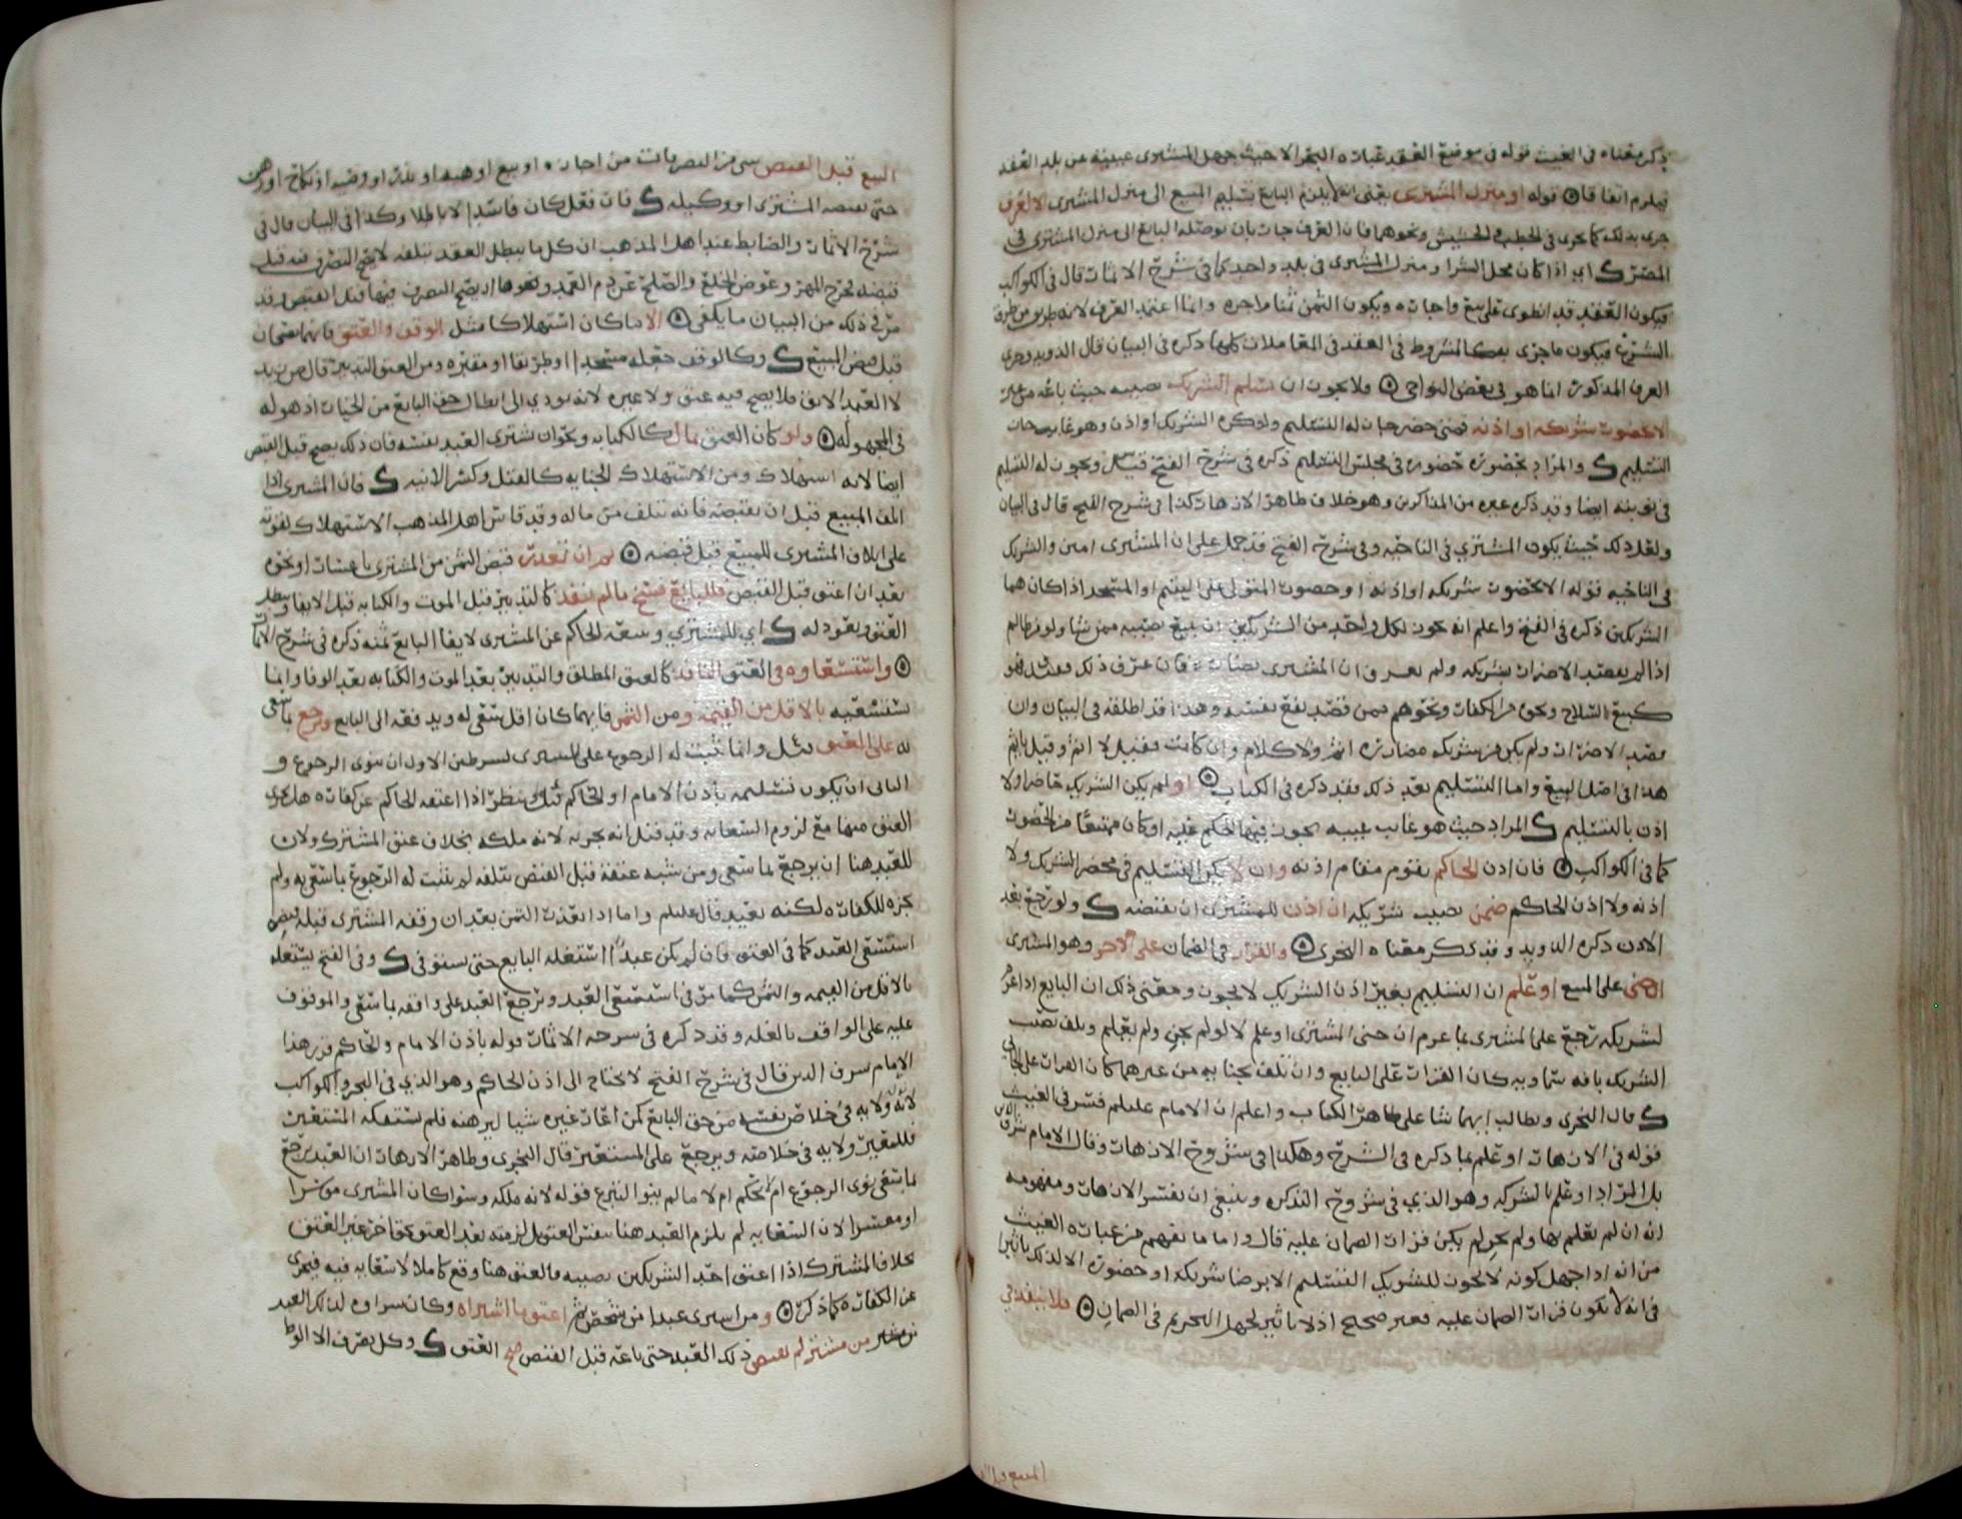 ذكره معناه في الغيث قوله في موضع العقد عبارة البحر الا حيث جهل المشتري عيبته عن بلد العقد
فيلزم اتفاقا قوله او منزل المشتري يعني انه لا يلزم البايع تسليم المبيع الى منزل المشتري الا لعرف
جرى بذلك كما يجرى في الحطب والحشيش ونحوهما فان العرف جار بان يوصله البايع الى منزل المشتري في
المصر ك اي اذا كان محل الشرا ومنزل المشتري في بلد واحد كما في شرح الاثمار قال في الكواكب
فيكون العقد قد انطوى على بيع واجارة ويكون الثمن ثمنا واجرة وانما اعتمد العرف لانه طريق من طرق
الشرع فيكون ما جرى به كالمشروط في العقد في المعاملات كلها ذكره في البيان قال الدويد وجرى
العرف المذكور انما هو في بعض النواحي ولا يجوز ان تسليم الشريك نصيبه حيث باعه من غير
الا بحضور شريكه او اذنه فمتى حضر جاز له التسليم ولو كره الشريك او اذن وهو غايب جاز
التسليم ك والمراد بحضوره حضوره في مجلس التسليم ذكره في شرح الفتح قيل ويجوز له التسليم
في نوبته ايضا وقد ذكره غيره من المذاكرين وهو خلاف ظاهر الازهار وكذا في شرح الفتح قال في البيان
ولعل ذلك حيث يكون المشتري في الناحيه وفي شرح الفتح قد حمل على ان المشتري امين والشريك
في الناحيه قوله الا بحضور شريكه او اذنه او حضور المتولي على اليتيم او المسجد اذا كان هما
الشريكين ذكره في الفتح واعلم انه يجوز لكل واحد من الشريكين ان يبيع نصيبه ممن شا ولو من ظالم
اذا لم يقصد الاضرار بشريكه ولم يعرف ان المشتري يضار به فان عرف ذلك فهو
كبيع السلاح ونحوه من الكفار ونحوهم فمن قصد نفع نفسه وهذا قد اطلقه في البيان وان
قصد الاضرار ولم يكن من شريكه مضاررة اثم ولا كلام وان كانت فقيل لا اثم وقيل ياثم
هذا في اصل البيع واما التسليم بعد ذلك فقد ذكره في الكتاب او لم يكن الشريك حاضرا ولا
اذن بالتسليم ك المراد حيث هو غايب غيبه يجوز فيها الحكم عليه او كان ممتنعا من الحضور
كما في الكواكب فان اذن الحاكم يقوم مقام اذنه وان لا يكن التسليم في محضر الشريك ولا
اذنه ولا اذن الحاكم ضمن نصيب شريكه ان اذن للمشتري ان يقبضه ك ولو رجع بعد
الاذن ذكره الدويد وقد ذكر معناه النجري والقرار في الضمان على الاخر وهو المشتري
ان جنى على المبيع او علم ان التسليم بغير اذن الشريك لا يجوز ومعنى ذلك ان البايع اذا غرم
لشريكه رجع على المشتري بما غرم ان جنى المشتري او علم لا لو لم يجن ولم يعلم وتلف نصيب
الشريك بافه سماويه كان القرار على البايع وان تلف بجنايه من غيرهما كان القرار على الجاني
ك قال النجري ويطالب ايهما شا على ظاهر الكتاب واعلم ان الامام عليلم فسر في الغيث
قوله في الازهار او علم بما ذكره في الشرح وهكذا في شروح الازهار وقال الامام شرف الدين
بل المراد او علم بالشركه وهو الذي في شروح التذكره وينبغي ان يفسر الازهار ومفهومه
انه ان لم يعلم بها ولم يجن لم يكن قرار الضمان عليه قال واما ما يفهم من عبارة الغيث
من انه اذا جهل كونه لا يجوز للشريك التسليم الا برضا شريكه او حضوره الا لذلك تاثيرا
في انه لا يكون قرار الضمان عليه فغير صحيح اذ لا تاثير لجهل التحريم في الضمان ولا ينفذ في
المبيع قبل ا
البيع قبل القبض شي من التصرفات من اجارة او بيع او هبه او نذر او وقف او نكاح او رهن
حتى يقبضه المشتري او وكيله ك فان فعل كان فاسدا لا باطلا وكذا في البيان قال في
شرح الاثمار والضابط عند اهل المذهب ان كل ما يبطل العقد بتلفه لا يصح التصرف فيه قبل
قبضه يخرج المهر وعوض الخلع والصلح عن دم العمد ونحوها اذ يصح التصرف فيها قبل القبض وقد
مر في ذلك من البيان ما يكفي الا ما كان استهلاكا مثل الوقف والعتق فانهما يصحان
قبل قبض المبيع ك وكالوقف جعله مسجدا او طريقا او مقبره ومن العتق التدبير قال ض زيد
لا العبد الابق فلا يصح فيه عتق ولا غيره لانه يودي الى ابطال حق البايع من الخيار اذ هو له
في المجهوله ولو كان العتق بمال كالكتابه ونحو ان يشتري العبد نفسه فان ذلك يصح قبل القبض
ايضا لانه استهلاك ومن الاستهلاك الجنايه كالقتل وكسر الانيه ك فان المشتري اذا
اتلف المبيع قبل ان يقبضه فانه يتلف من ماله وقد قاس اهل المذهب الاستهلاك لقوته
على اتلاف المشتري للمبيع قبل قبضه ثم ان تعذر قبض الثمن من المشتري باعسار او نحوه
بعد ان اعتق قبل القبض فللبايع فسخ ما لم ينفذ كالتدبير قبل الموت والكتابه قبل الايفا ويبطل
العتق ويعود له ك اي للمشتري وبيعه الحاكم عن المشتري لايفا البايع ثمنه ذكره في شرح الاثمار
واستسعاوه في العتق النافذ كالعتق المطلق والتدبير بعد الموت والكتابه بعد الوفا وانما
يستسعيه بالاقل من القيمه ومن الثمن فايهما كان اقل سعى له ويدفعه الى البايع ويرجع بما سعى
له على المعتق وانما ثبت له الرجوع على المشتري بشرطين الاول ان ينوي الرجوع و
الثاني ان يكون تسليمه باذن الامام او الحاكم قيل ينظر اذا اعتقه الحاكم عن كفارة هل يجزي
العتق عنها مع لزوم السعايه وقد قيل انه يجزيه لانه ملكه بخلاف عتق المشترك ولان
للعبد هنا ان يرجع بما سعى ومن شبه عتقه قبل القبض بتلفه لم يثبت له الرجوع بما سعى به ولم
يجزه للكفارة لكنه بعيد قال عليلم واما اذا تعذر الثمن بعد ان وقفه المشتري قبل قبضه
استسعى العبد كما في العتق فان لم يكن عبدا استغله البايع حتى يستوفي ك وفي الفتح يستغله
بالاقل من القيمه والثمن كما مر في استسعى العبد ويرجع العبد على واقفه بما سعى والموقوف
عليه على الواقف بالغله وقد ذكره في شرحه الاثمار قوله باذن الامام والحاكم قرر هذا
الامام شرف الدين قال في شرح الفتح لا يحتاج الى اذن الحاكم وهو الذي في البحر والكواكب
لانه ولايه في خلاص نفسه من حق البايع كمن اعار غيره شيا ليرهنه فلم يستفكه المستعير
فللمعير ولايه في خلاصه ويرجع على المستعير قال النجري وظاهر الازهار ان العبد يرجع
بما سعى نوى الرجوع ام لا حكم ام لا ما لم ينو التبرع قوله لانه ملكه وسوا كان المشتري موسرا
او معسرا لان السعايه لم يلزم العبد هنا بنفس العتق بل لزمته بعد العتق بحق اخر غير العتق
بخلاف المشترك اذا اعتق احد الشريكين نصيبه فالعتق هنا وقع كاملا لا سعايه فيه فيجزى
عن الكفارة كما ذكر ومن اشترى عبدا من شخص ثم اعتق ما اشتراه وكان شراوه لذلك العبد
من مشتر لم يقبض ذلك العبد حتى باعه قبل القبض صح العتق ك وكل تصرف الا الوط